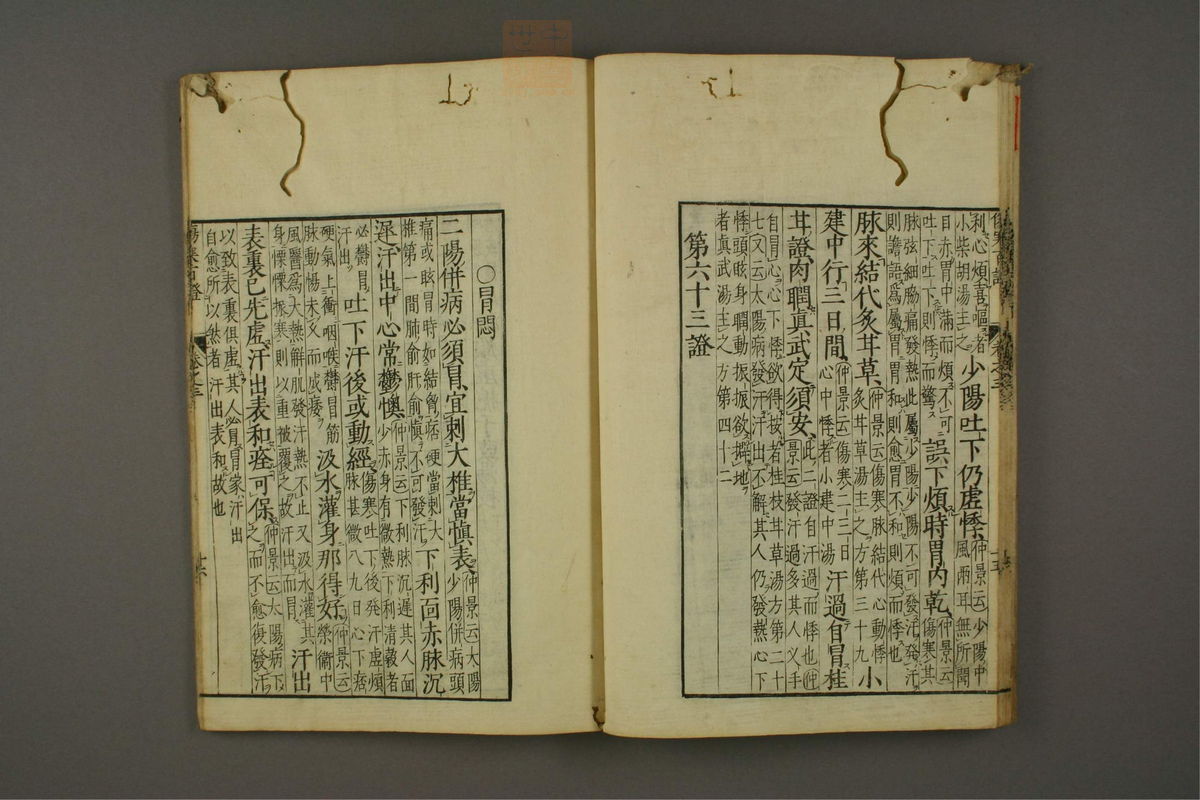 利心煩喜嘔者
小柴胡湯主之
少陽吐下仍虛悸
仲景云少陽中
風兩耳無所聞
目赤胷中滿而煩不可
吐下吐下則悸而驚
誤下煩時胃內乾
仲景云
傷寒其
脉弦細脇痛發熱此屬少陽少陽不可發汗發汗
則譫語為屬胃胃和則愈胃不和則煩而悸也
脉來結代炙甘草
仲景云傷寒脉結代心動悸
炙甘草湯主之方第三十九
小
建中行三日間
仲景云傷寒二三日
心中悸者小建中湯
汗過自冒桂
甘證肉瞤真武定須安
此二證自汗過而悸也仲
景云發汗過多其人叉手
自冒心心下悸欲得按者桂枝甘草湯方第二十
七又云太陽病發汗汗出不解其人仍發熱心下
悸頭眩身瞤動振振欲擗地
者真武湯主之方第四十二
第六十三證
○冒悶
二陽併病必須冒宜刺大椎當慎表
仲景云太陽
少陽併病頭
痛或眩冒時如結胷痞硬當刺大
椎第一間肺俞肝俞慎不可發汗
下利面赤脉沉
遲汗出中心常鬱懊
仲景云下利脉沉遲其人面
少赤身有微熱下利清穀者
必鬱冒
汗出
吐下汗後或動經
傷寒吐下後發汗虛煩
脉甚微八九日心下痞
硬氣上衝咽喉鬱冒筋
脉動惕未久而成痿
汲水灌身那得好
仲景云
榮衛中
風醫為大熱解肌發汗熱不止又汲水灌其
身慄慄振寒則以重被覆之故汗出而冒
汗出
表裏已先虛汗出表和痊可保
仲景云太陽病下
之而不愈復發汗
以致表裏俱虛其人必冒冒家汗出
自愈所以然者汗出表和故也